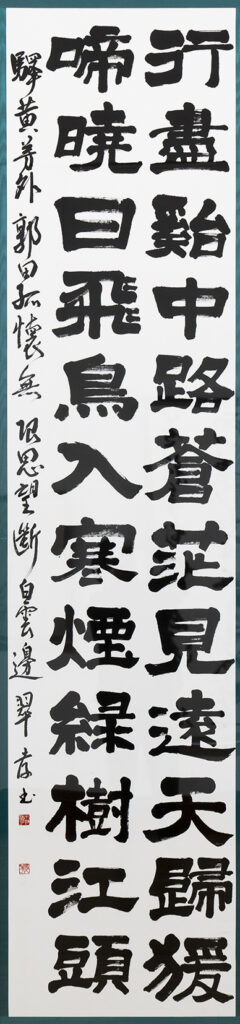 行盡谿中路蒼茫見遠天歸猨
啼曉日飛鳥入寒煙緑樹江頭
驛黄茅外郭田孤懷無限思望斷白雲邊 翠書